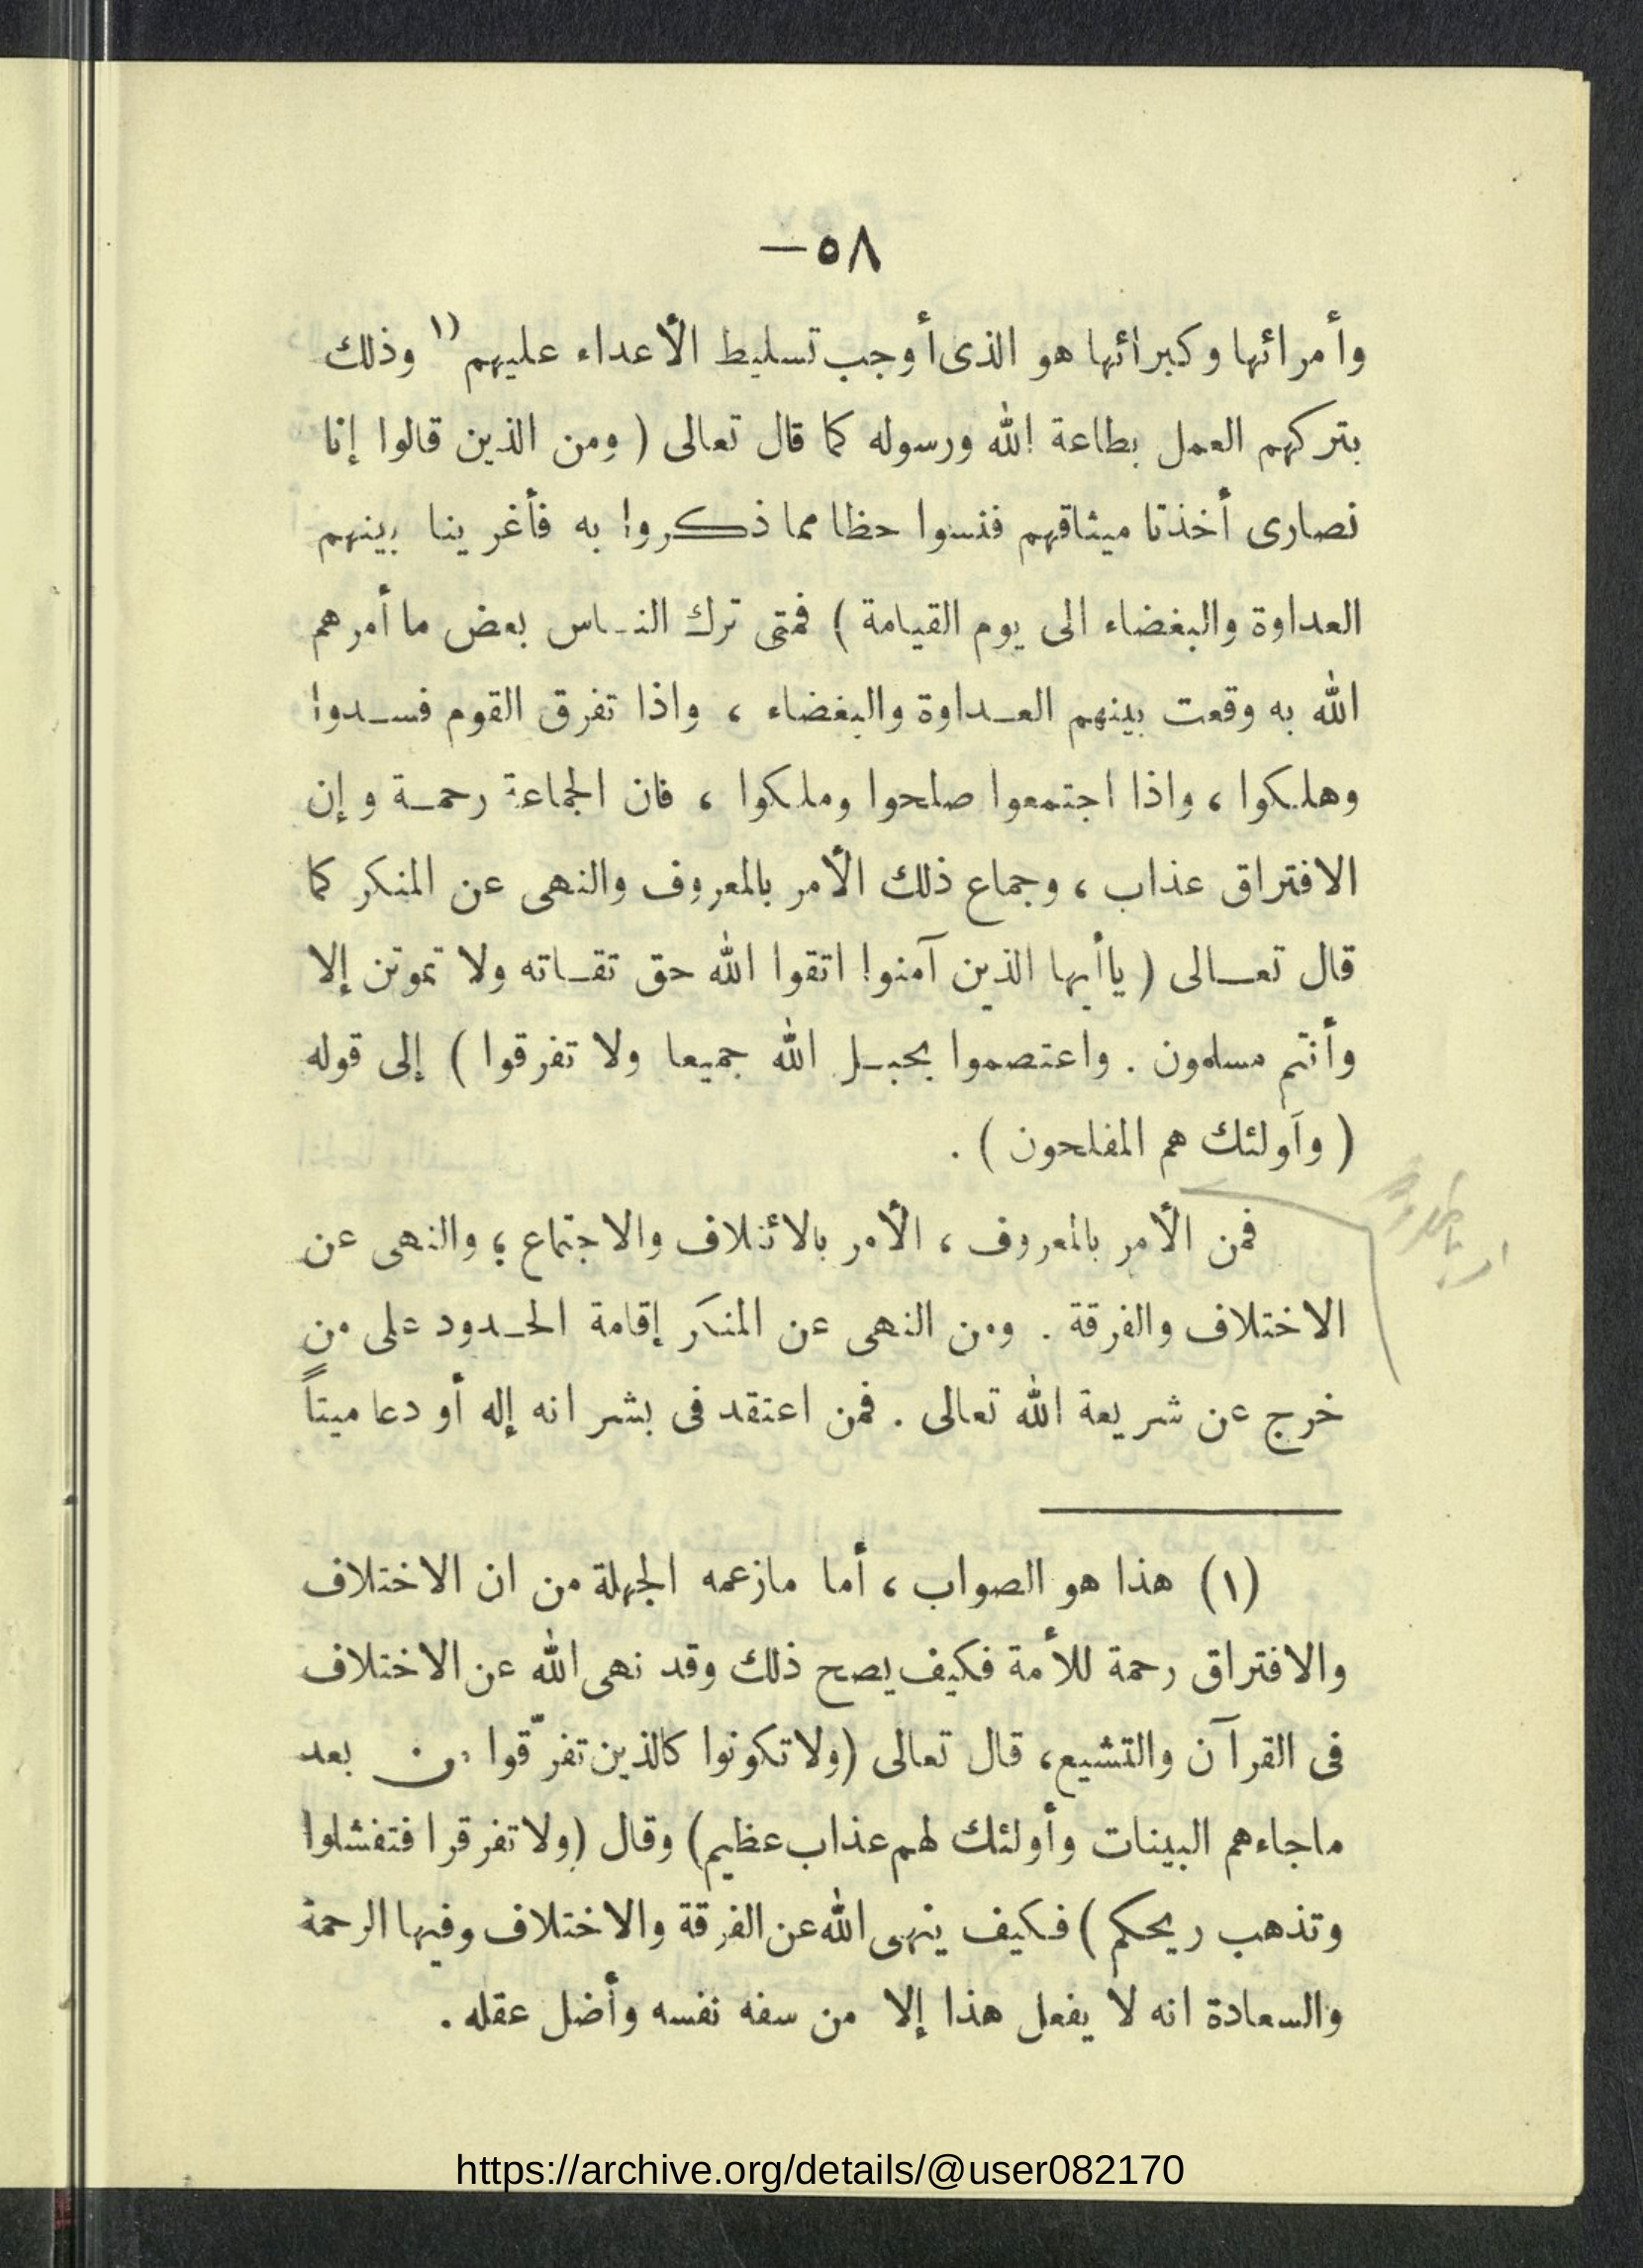 ٥٨—
وأمرائها وكبرائها هو الذى أوجب تسليط الأعداء عليهم (١ وذلك
بتركهم العمل بطاعة الله ورسوله كما قال تعالى ( ومن الذين قالوا إنا
نصارى أخذنا ميثاقهم فنسوا حظا مما ذكروا به فأغرينا بينهم
العداوة والبغضاء الى يوم القيامة ) فمتى ترك الناس بعض ما أمرهم
الله به وقعت بينهم العداوة والبغضاء ، واذا تفرق القوم فسدوا
وهلكوا ، واذا اجتمعوا صلحوا وملكوا ، فان الجماعة رحمة وإن
الافتراق عذاب ، وجماع ذلك الأمر بالمعروف والنهى عن المنكر كما
قال تعالى ( ياأيها الذين آمنوا اتقوا الله حق تقاته ولا تموتن إلا
وأنتم مسلمون . واعتصموا بحبل الله جميعا ولا تفرقوا ) إلى قوله
( وأولئك هم المفلحون ) .
فمن الأمر بالمعروف ، الأمر بالائتلاف والاجتماع ؛ والنهى عن
الاختلاف والفرقة . ومن النهى عن المنكر إقامة الحدود على من
خرج عن شريعة الله تعالى . فمن اعتقد فى بشر انه إله أو دعا ميتاً
(١) هذا هو الصواب ، أما مازعمه الجهلة من ان الاختلاف
والافتراق رحمة للأمة فكيف يصح ذلك وقد نهى الله عن الاختلاف
فى القرآن والتشيع، قال تعالى (ولا تكونوا كالذين تفرّقوا من بعد
ماجاءهم البينات وأولئك لهم عذاب عظيم) وقال (ولا تفرقرا فتفشلوا
وتذهب ريحكم ) فكيف ينهى الله عن الفرقة والاختلاف وفيها الرحمة
والسعادة انه لا يفعل هذا إلا من سفه نفسه وأضل عقله .
https://archive.org/details/@user082170